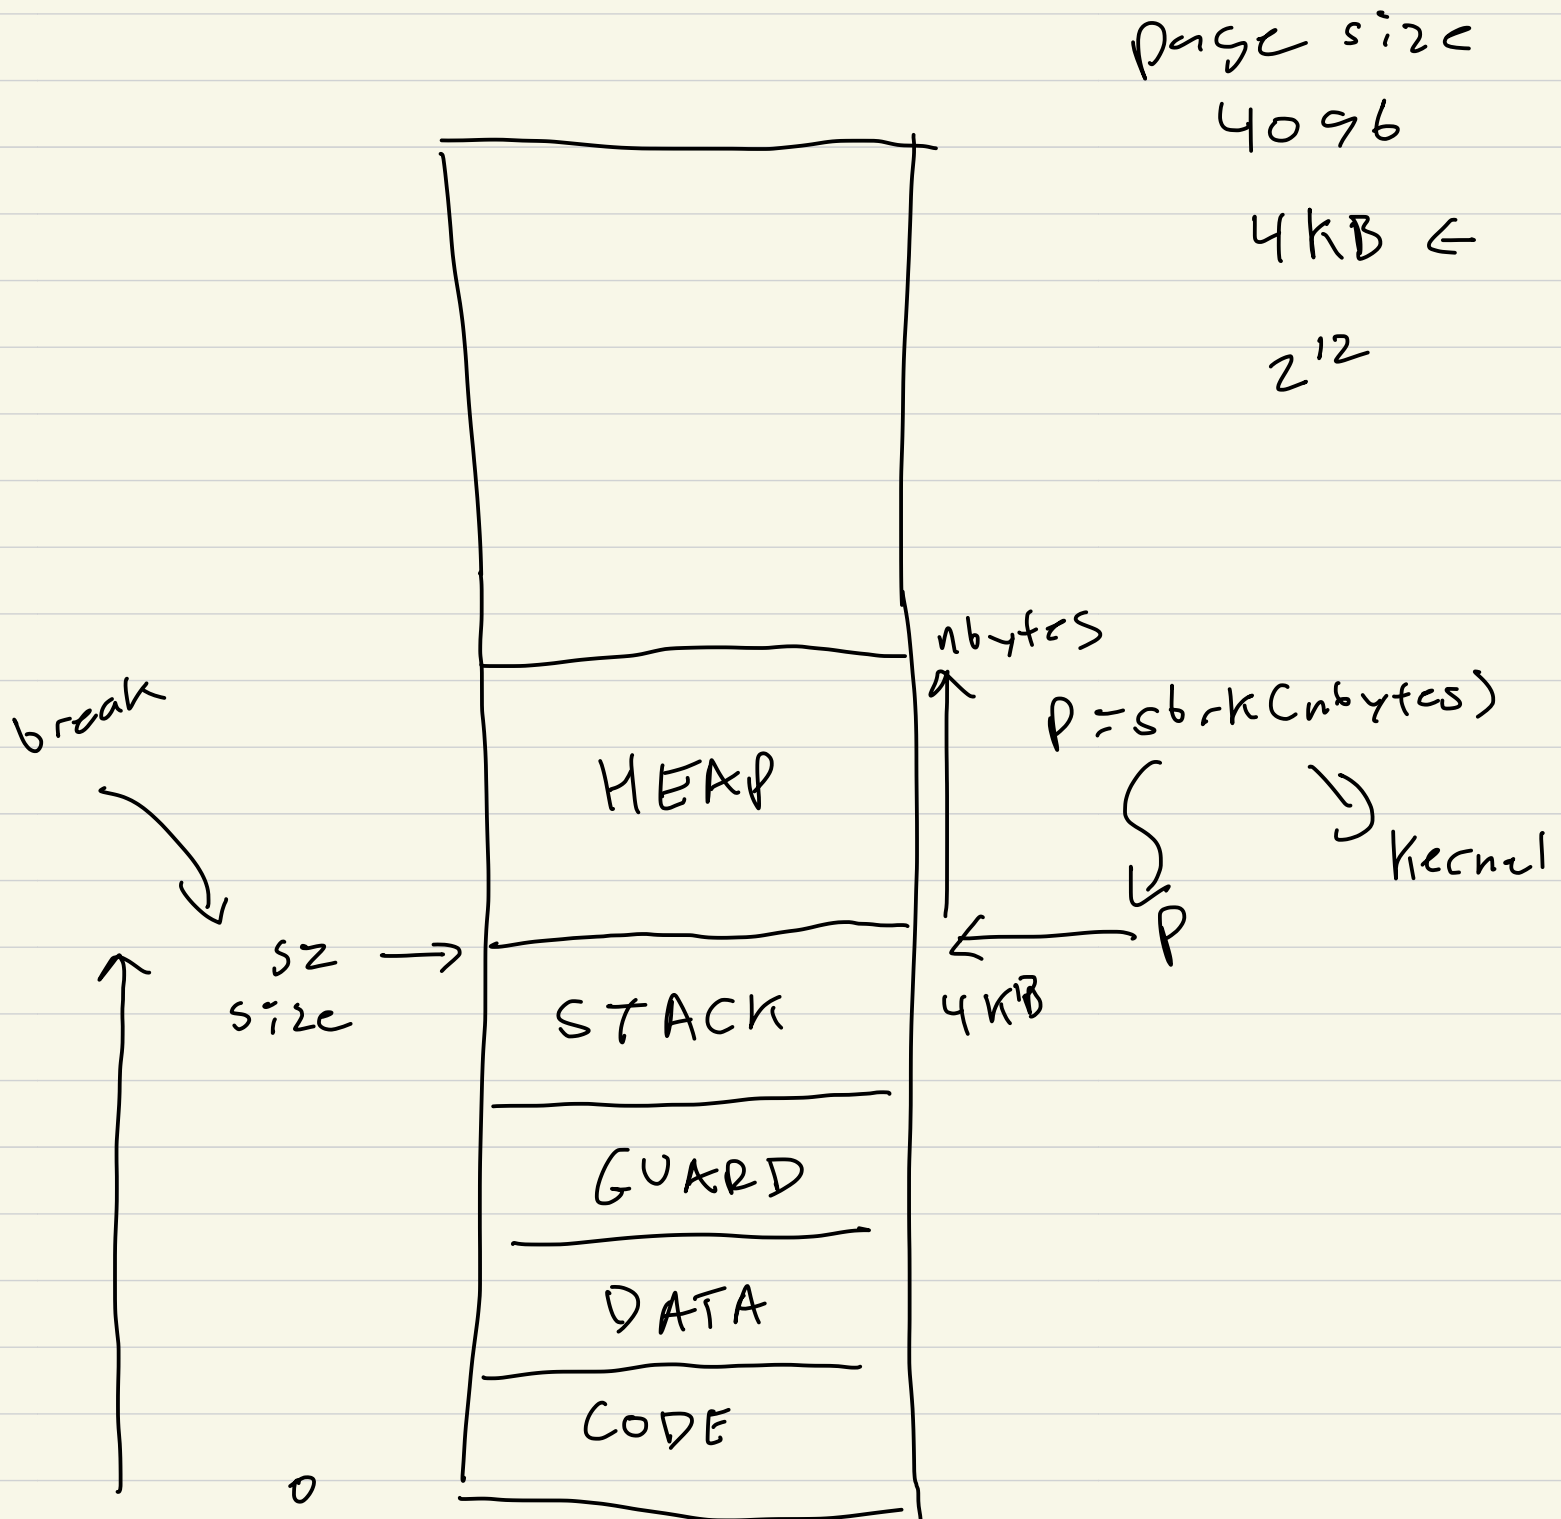 page size
4096
4KB ←
2^12
nbytes
break
P = sbrk(nbytes)
HEAP
Kernel
P
sz →
size
STACK
4KB
GUARD
DATA
CODE
0